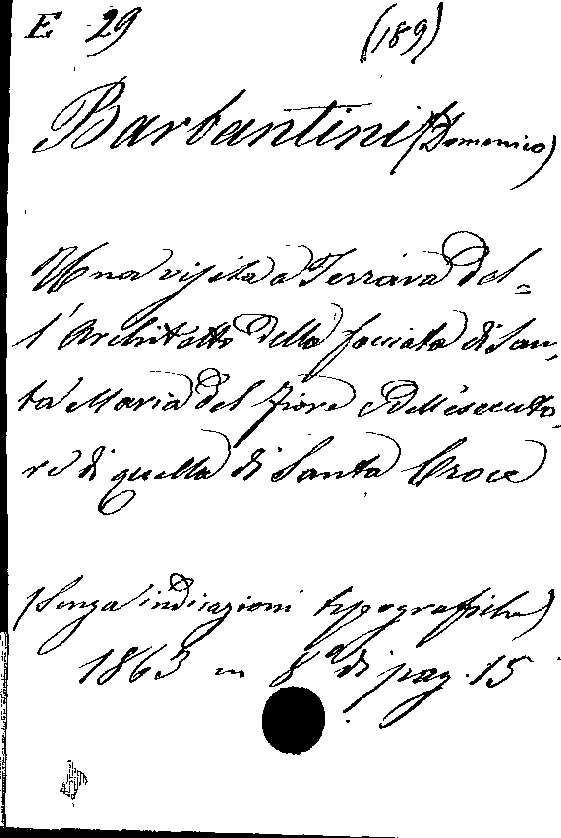 E 29 (189)
Barbantini (Domenico)
Una visita a Ferrara del=
l'Architetto della facciata di San
ta Maria del Fiore e dell'esecuto
re di quella di Santa Croce
(Senza indicazioni tipografiche)
1863 in 8° di pag. 15